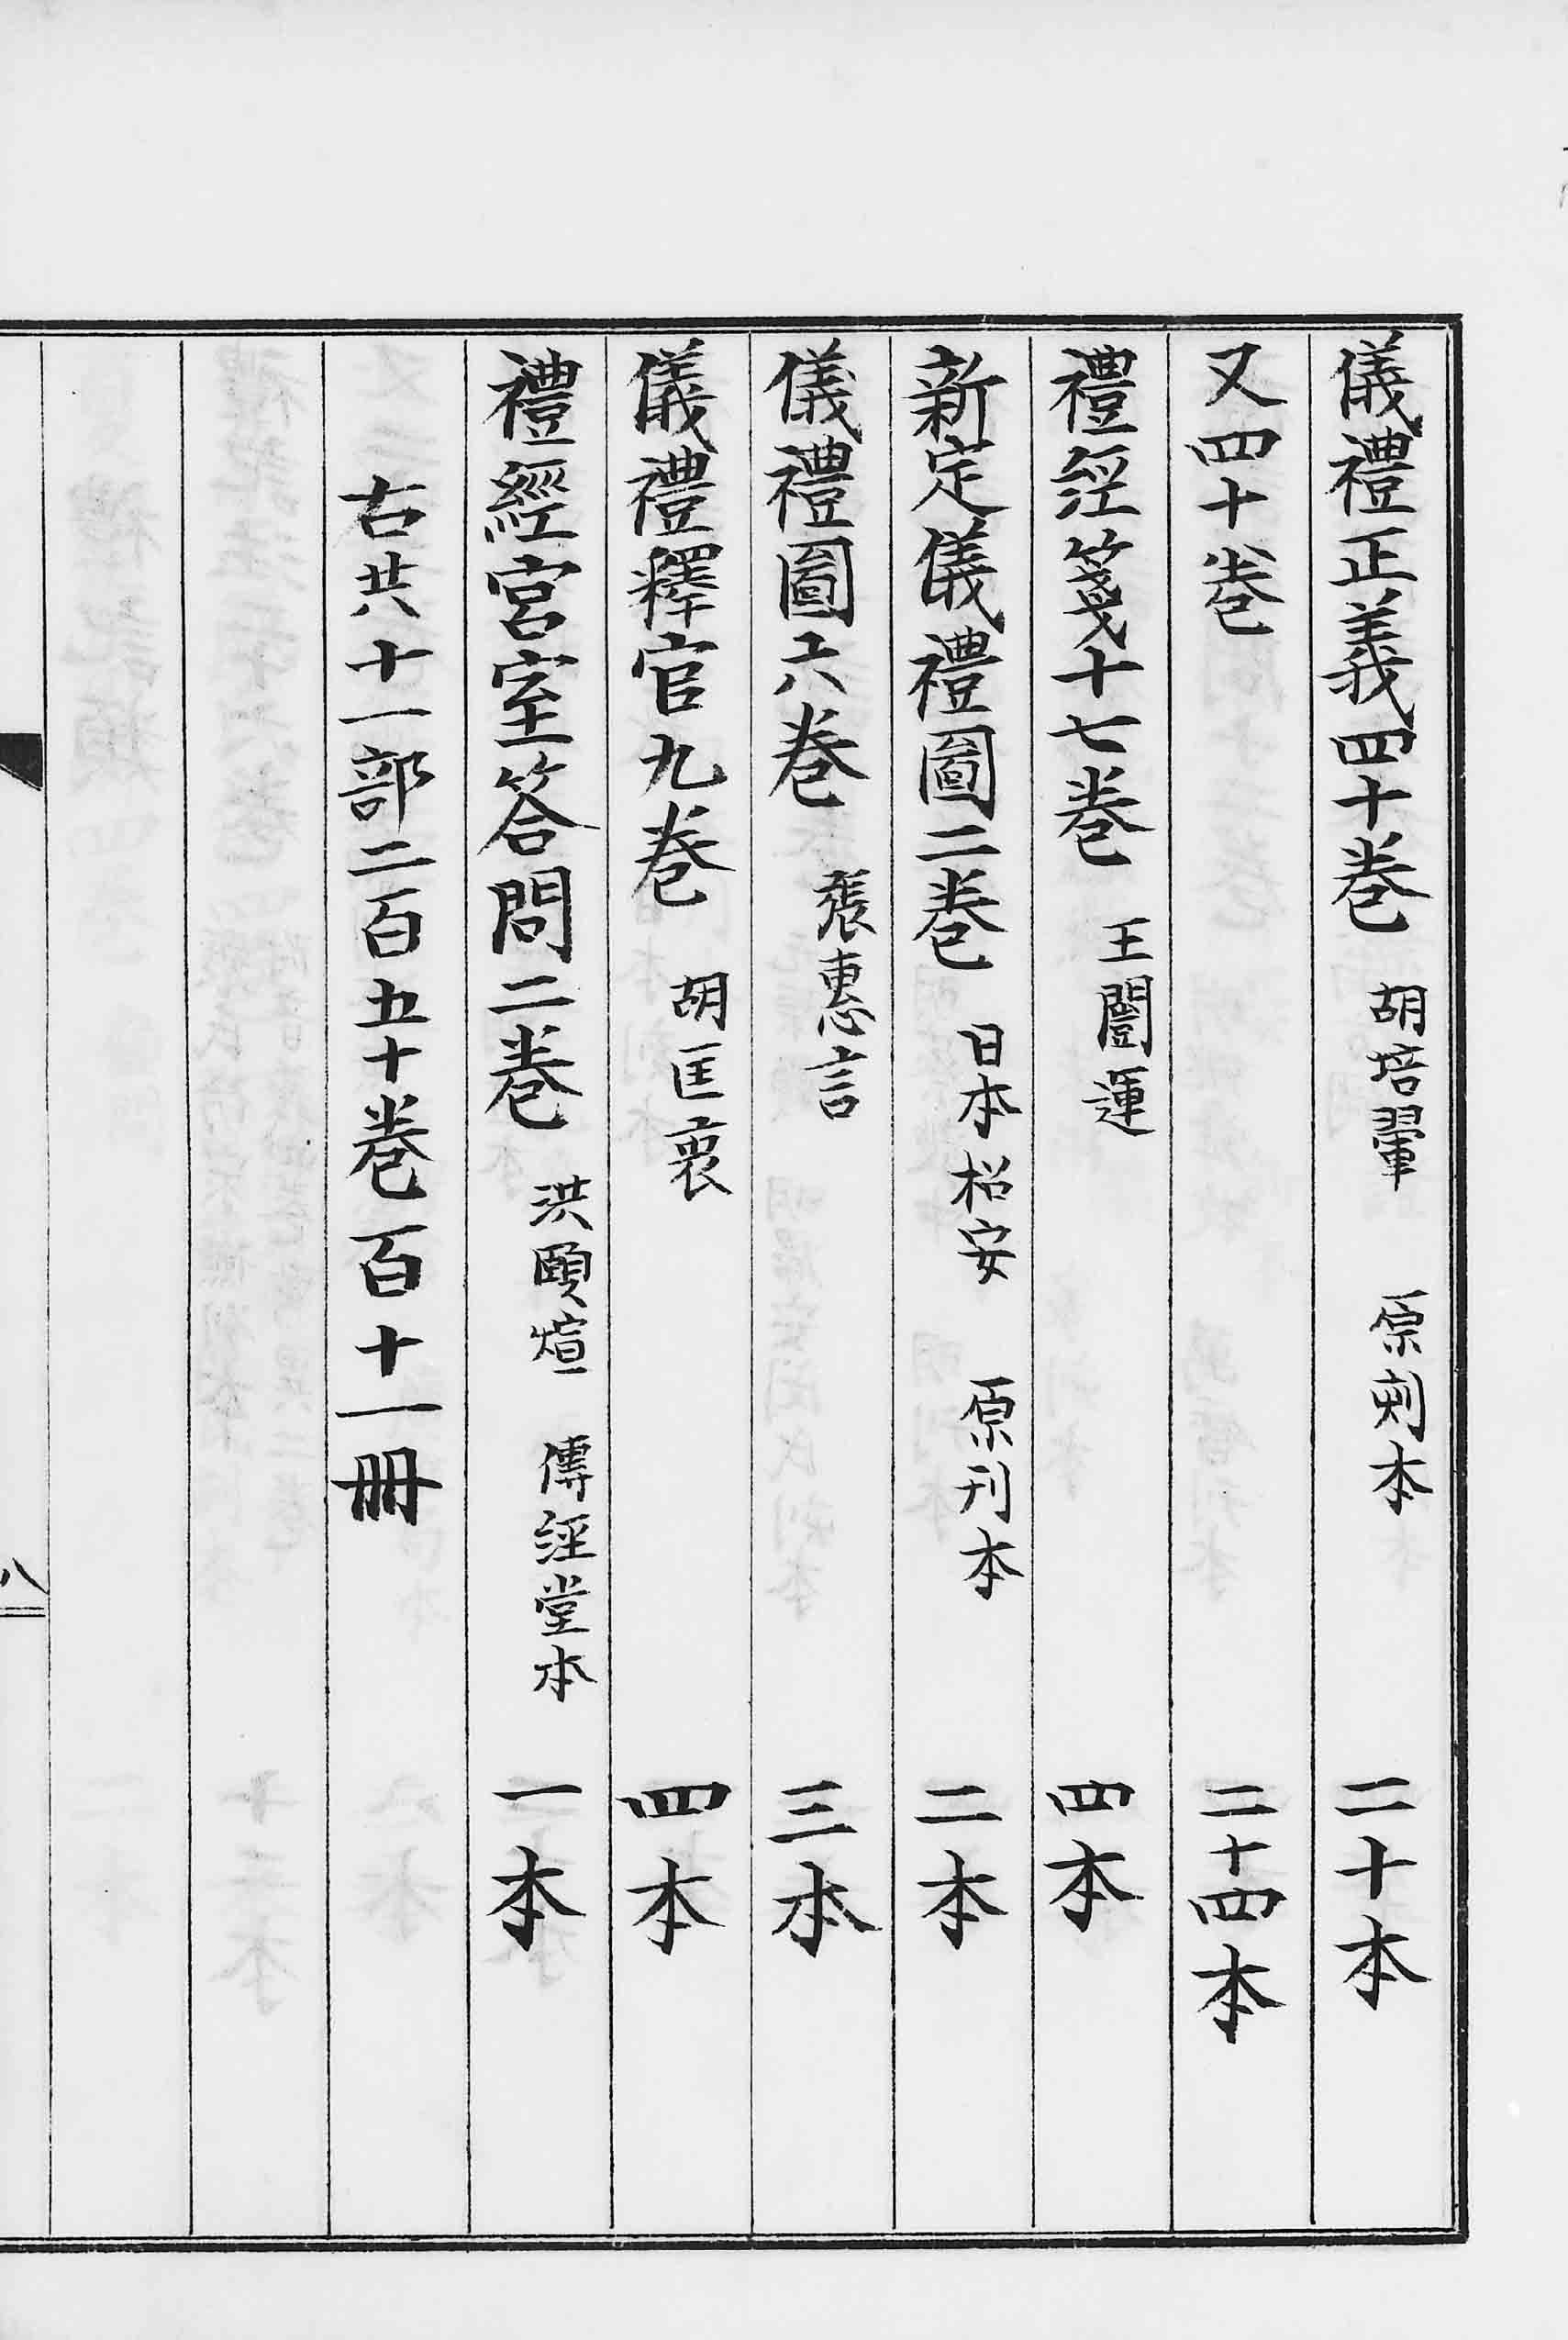 儀禮正義四十卷 胡培翬 原刻本 二十本
又四十卷 二十四本
禮經箋十七卷 王闓運 四本
新定儀禮圖二卷 日本松安 原刊本 二本
儀禮圖六卷 張惠言 三本
儀禮釋官九卷 胡匡衷 四本
禮經宮室答問二卷 洪頤煊 傳經堂本 一本
古共十一部二百五十卷百十一冊
八